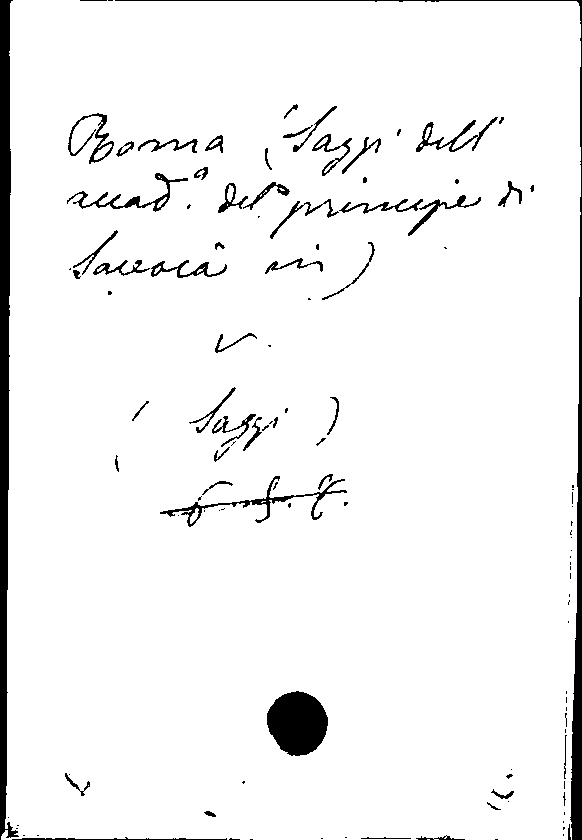 Roma (Saggi dell'
accad.ª del principe di
Savoia in)
v.
(Saggi)
6 S. Z.